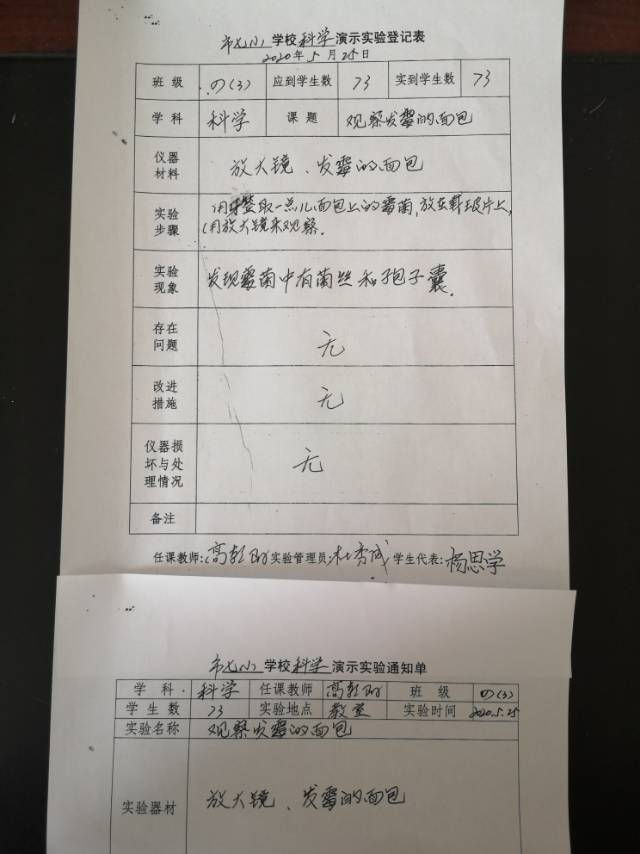 市七小 学校 科学 演示实验登记表
2020年5月25日
班级 四(3) 应到学生数 73 实到学生数 73
学科 科学 课题 观察发霉的面包
仪器材料 放大镜、发霉的面包
实验步骤 用牙签取一点儿面包上的霉菌,放在载玻片上,
用放大镜来观察.
实验现象 发现霉菌中有菌丝和孢子囊.
存在问题 无
改进措施 无
仪器损坏与处理情况 无
备注
任课教师: 高 实验管理员: 杜秀成 学生代表: 杨思学
市七小 学校 科学 演示实验通知单
学科 科学 任课教师 高 班级 四(3)
学生数 73 实验地点 教室 实验时间 2020.5.25
实验名称 观察发霉的面包
实验器材 放大镜、发霉的面包